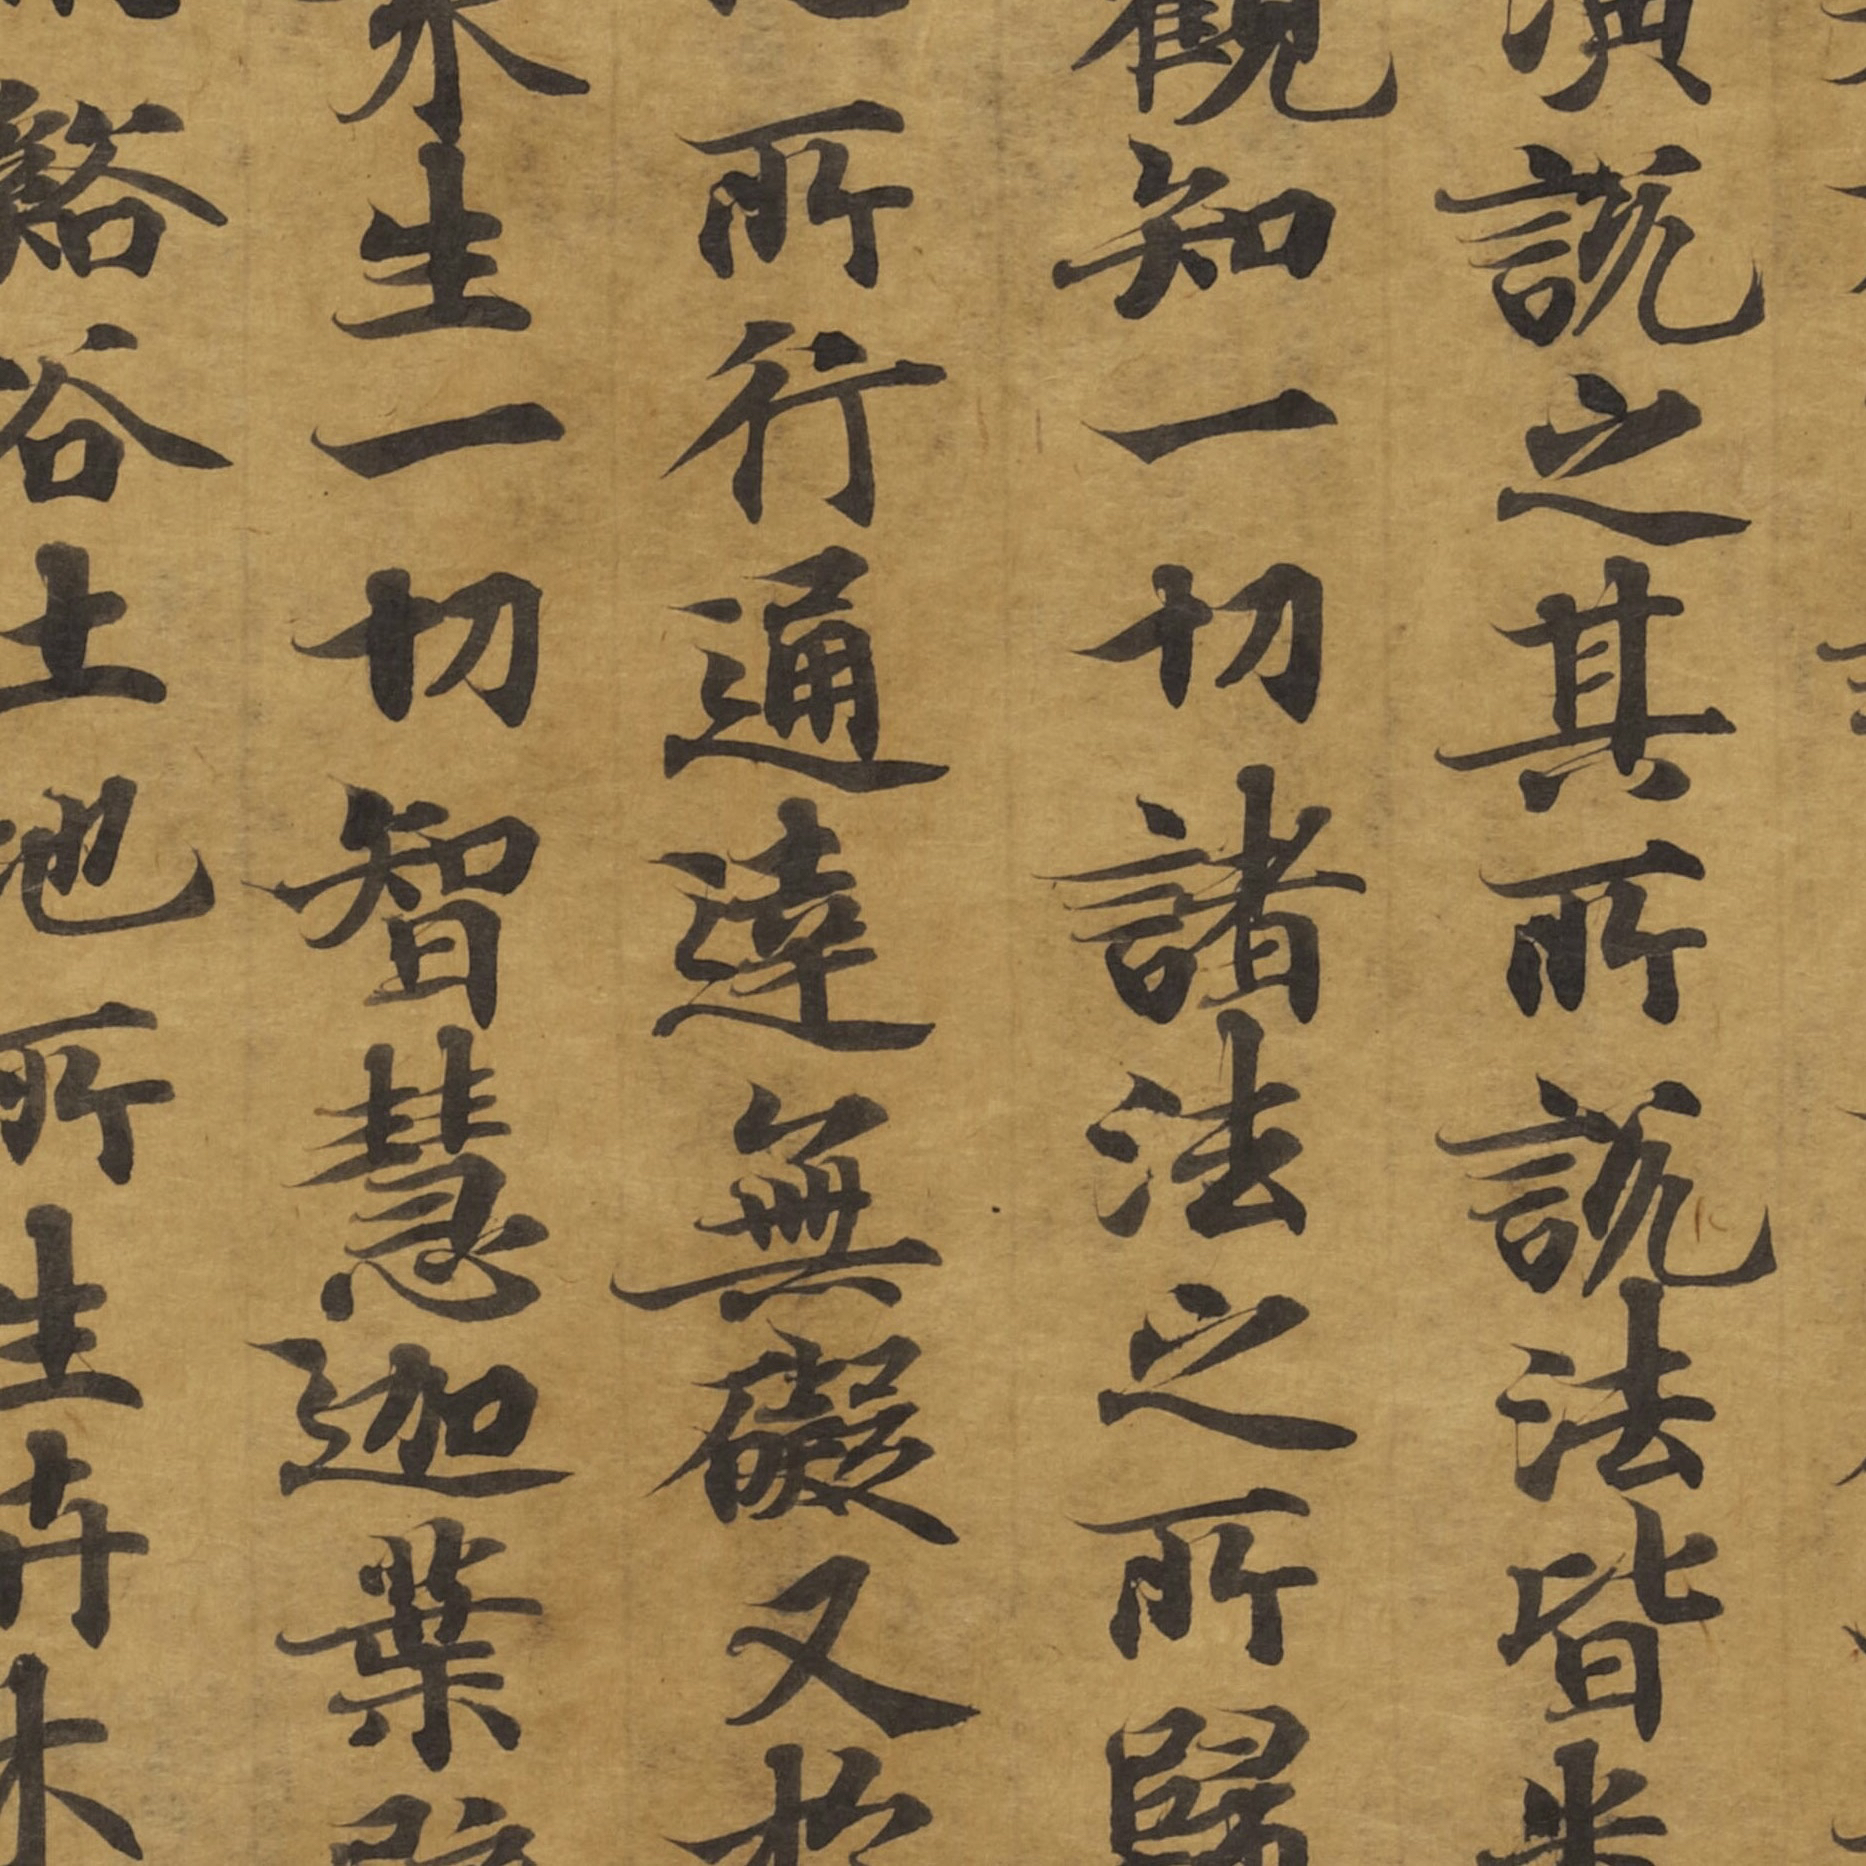 演説之其所説法皆悉
觀知一切諸法之所歸
所行通達無礙又於
衆生一切智慧迦葉
谿谷土地所生卉木